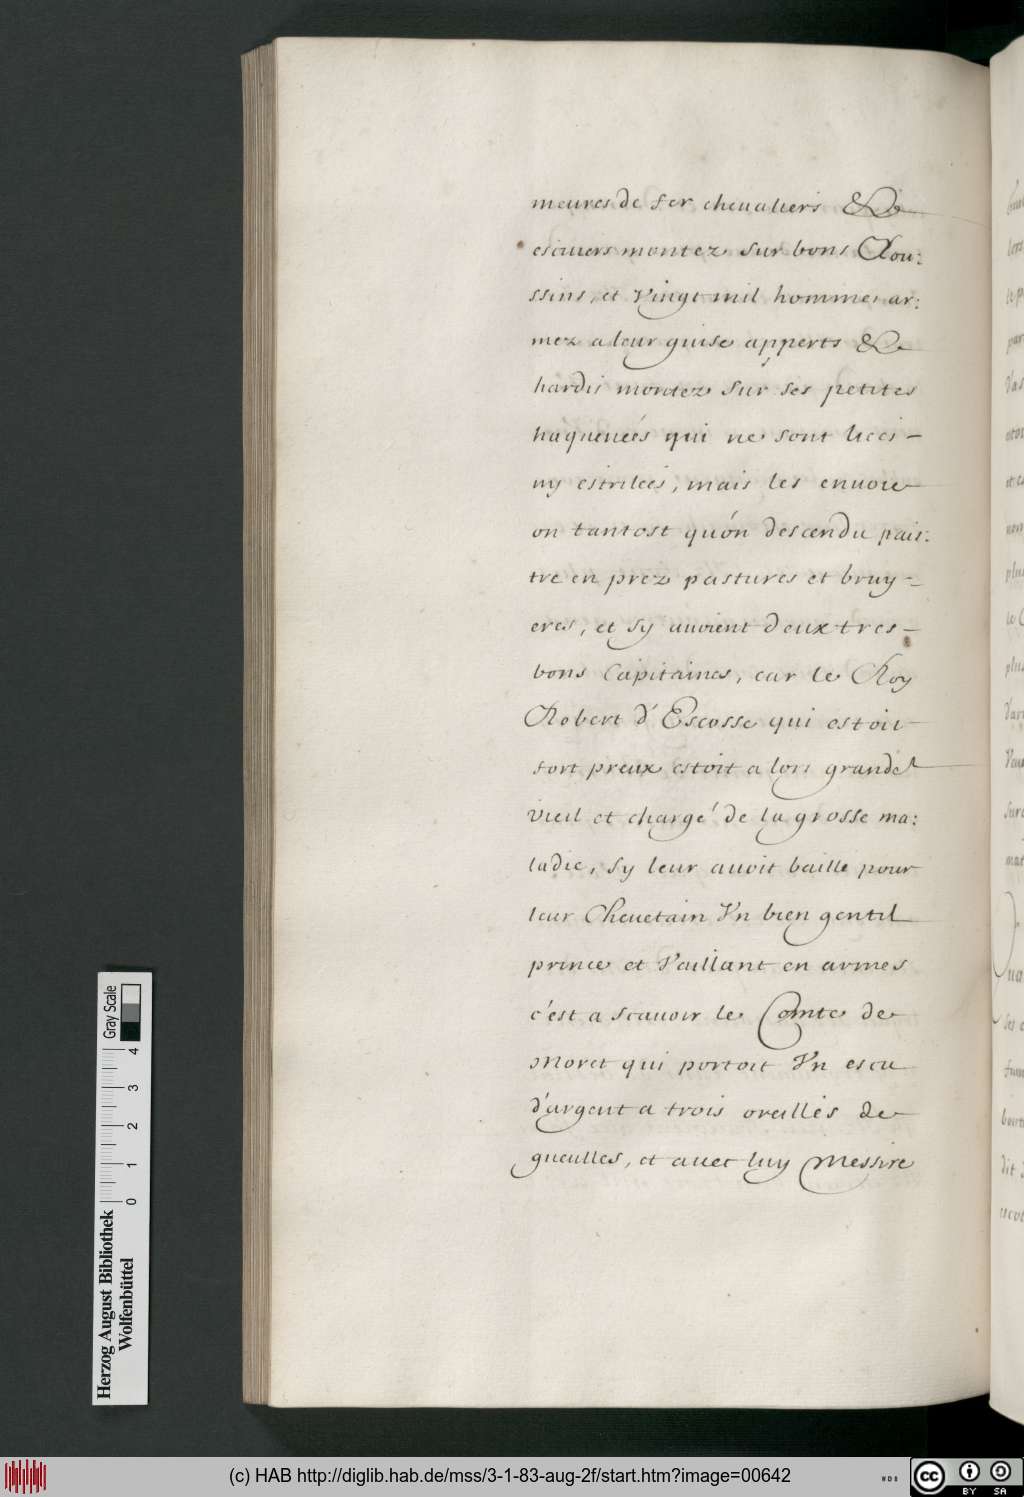 meures de fer chevaliers &
escuiers montez sur bons Rou:
ssins, et Vingt mil hommes ar:
mez a leur guise apperts &
hardis montez sur ses petites
haquenées qui ne sont liees –
ny estrilées, mais les envoie
on tantost qu'ón descendu pais:
tre en prez pastures et bruy –
eres, et sy auoient deux tres –
bons Capitaines, car le Roy
Robert d'Escosse qui estoit
fort preux estoit a lors grandet
vieil et chargé de la grosse ma:
ladie, sy leur auoit baille pour
leur Chevetain Vn bien gentil
prince et Vaillant en armes
c'est a scauoir le Comte de
Moret qui portoit Vn escu
d'argent a trois oreilles de
gueulles, et avec luy Messire
Herzog August Bibliothek
Wolfenbüttel
0 1 2 3 4
Gray Scale
(c) HAB http://diglib.hab.de/mss/3-1-83-aug-2f/start.htm?image=00642
WDB
cc BY SA